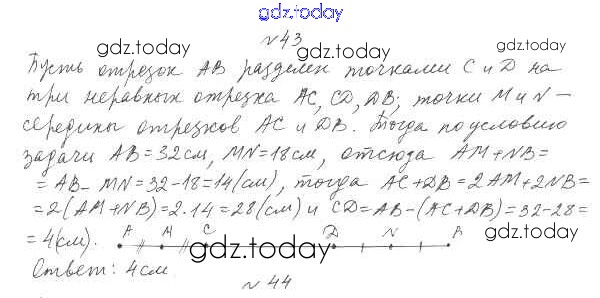 gdz.today
№43
gdz.today gdz.today gdz.today
Пусть отрезок AB разделен точками C и D на
три неравных отрезка AC, CD, DB; точки M и N –
середины отрезков AC и DB. Тогда по условию
задачи AB=32см, MN=18см, отсюда AM+NB=
=AB-MN=32-18=14(см), тогда AC+DB=2AM+2NB=
=2(AM+NB)=2·14=28(см) и CD=AB-(AC+DB)=32-28=
=4(см). A M C D N A
gdz.today gdz.today gdz.today
Ответ: 4см.
gdz.today
№44